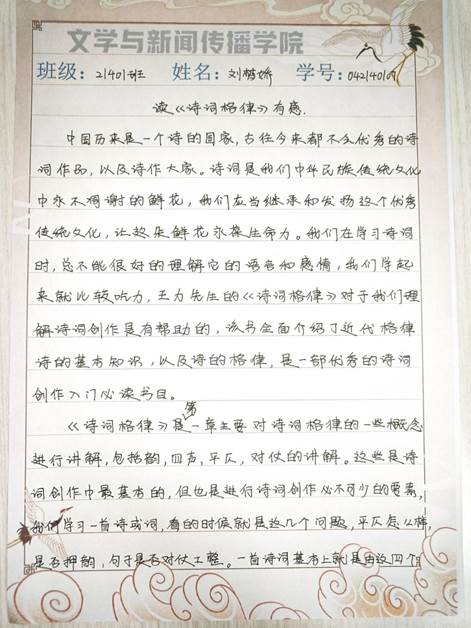 文学与新闻传播学院
班级：21401班 姓名：刘楷娇 学号：042140109
读《诗词格律》有感.
中国历来是一个诗的国家，古往今来都不乏优秀的诗
词作品，以及诗作大家。诗词是我们中华民族传统文化
中永不凋谢的鲜花，我们应当继承和发扬这个优秀
传统文化，让这朵鲜花永葆生命力。我们在学习诗词
时，总不能很好的理解它的语言和感情，我们学起
来就比较吃力，王力先生的《诗词格律》对于我们理
解诗词创作是有帮助的，该书全面介绍了近代格律
诗的基本知识，以及诗的格律，是一部优秀的诗词
创作入门必读书目。
《诗词格律》是第一章主要对诗词格律的一些概念
进行讲解，包括韵，四声，平仄，对仗的讲解。这些是诗
词创作中最基本的，但也是进行诗词创作必不可少的要素，
我们学习一首诗或词，看的时候就是这几个问题，平仄怎么样
是否押韵，句子是否对仗工整。一首诗词基本上就是由这四个